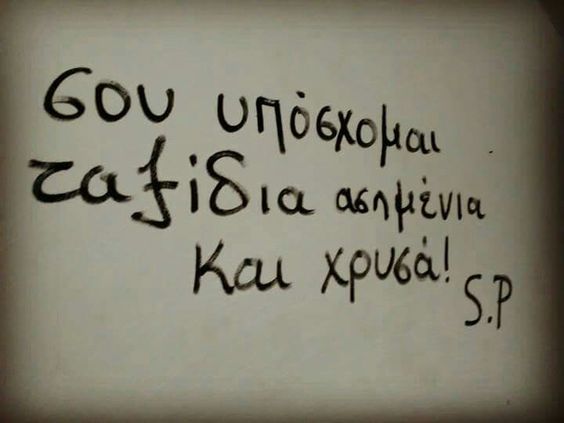 σου υπόσχομαι
ταξίδια ασημένια
και χρυσά!
S.P